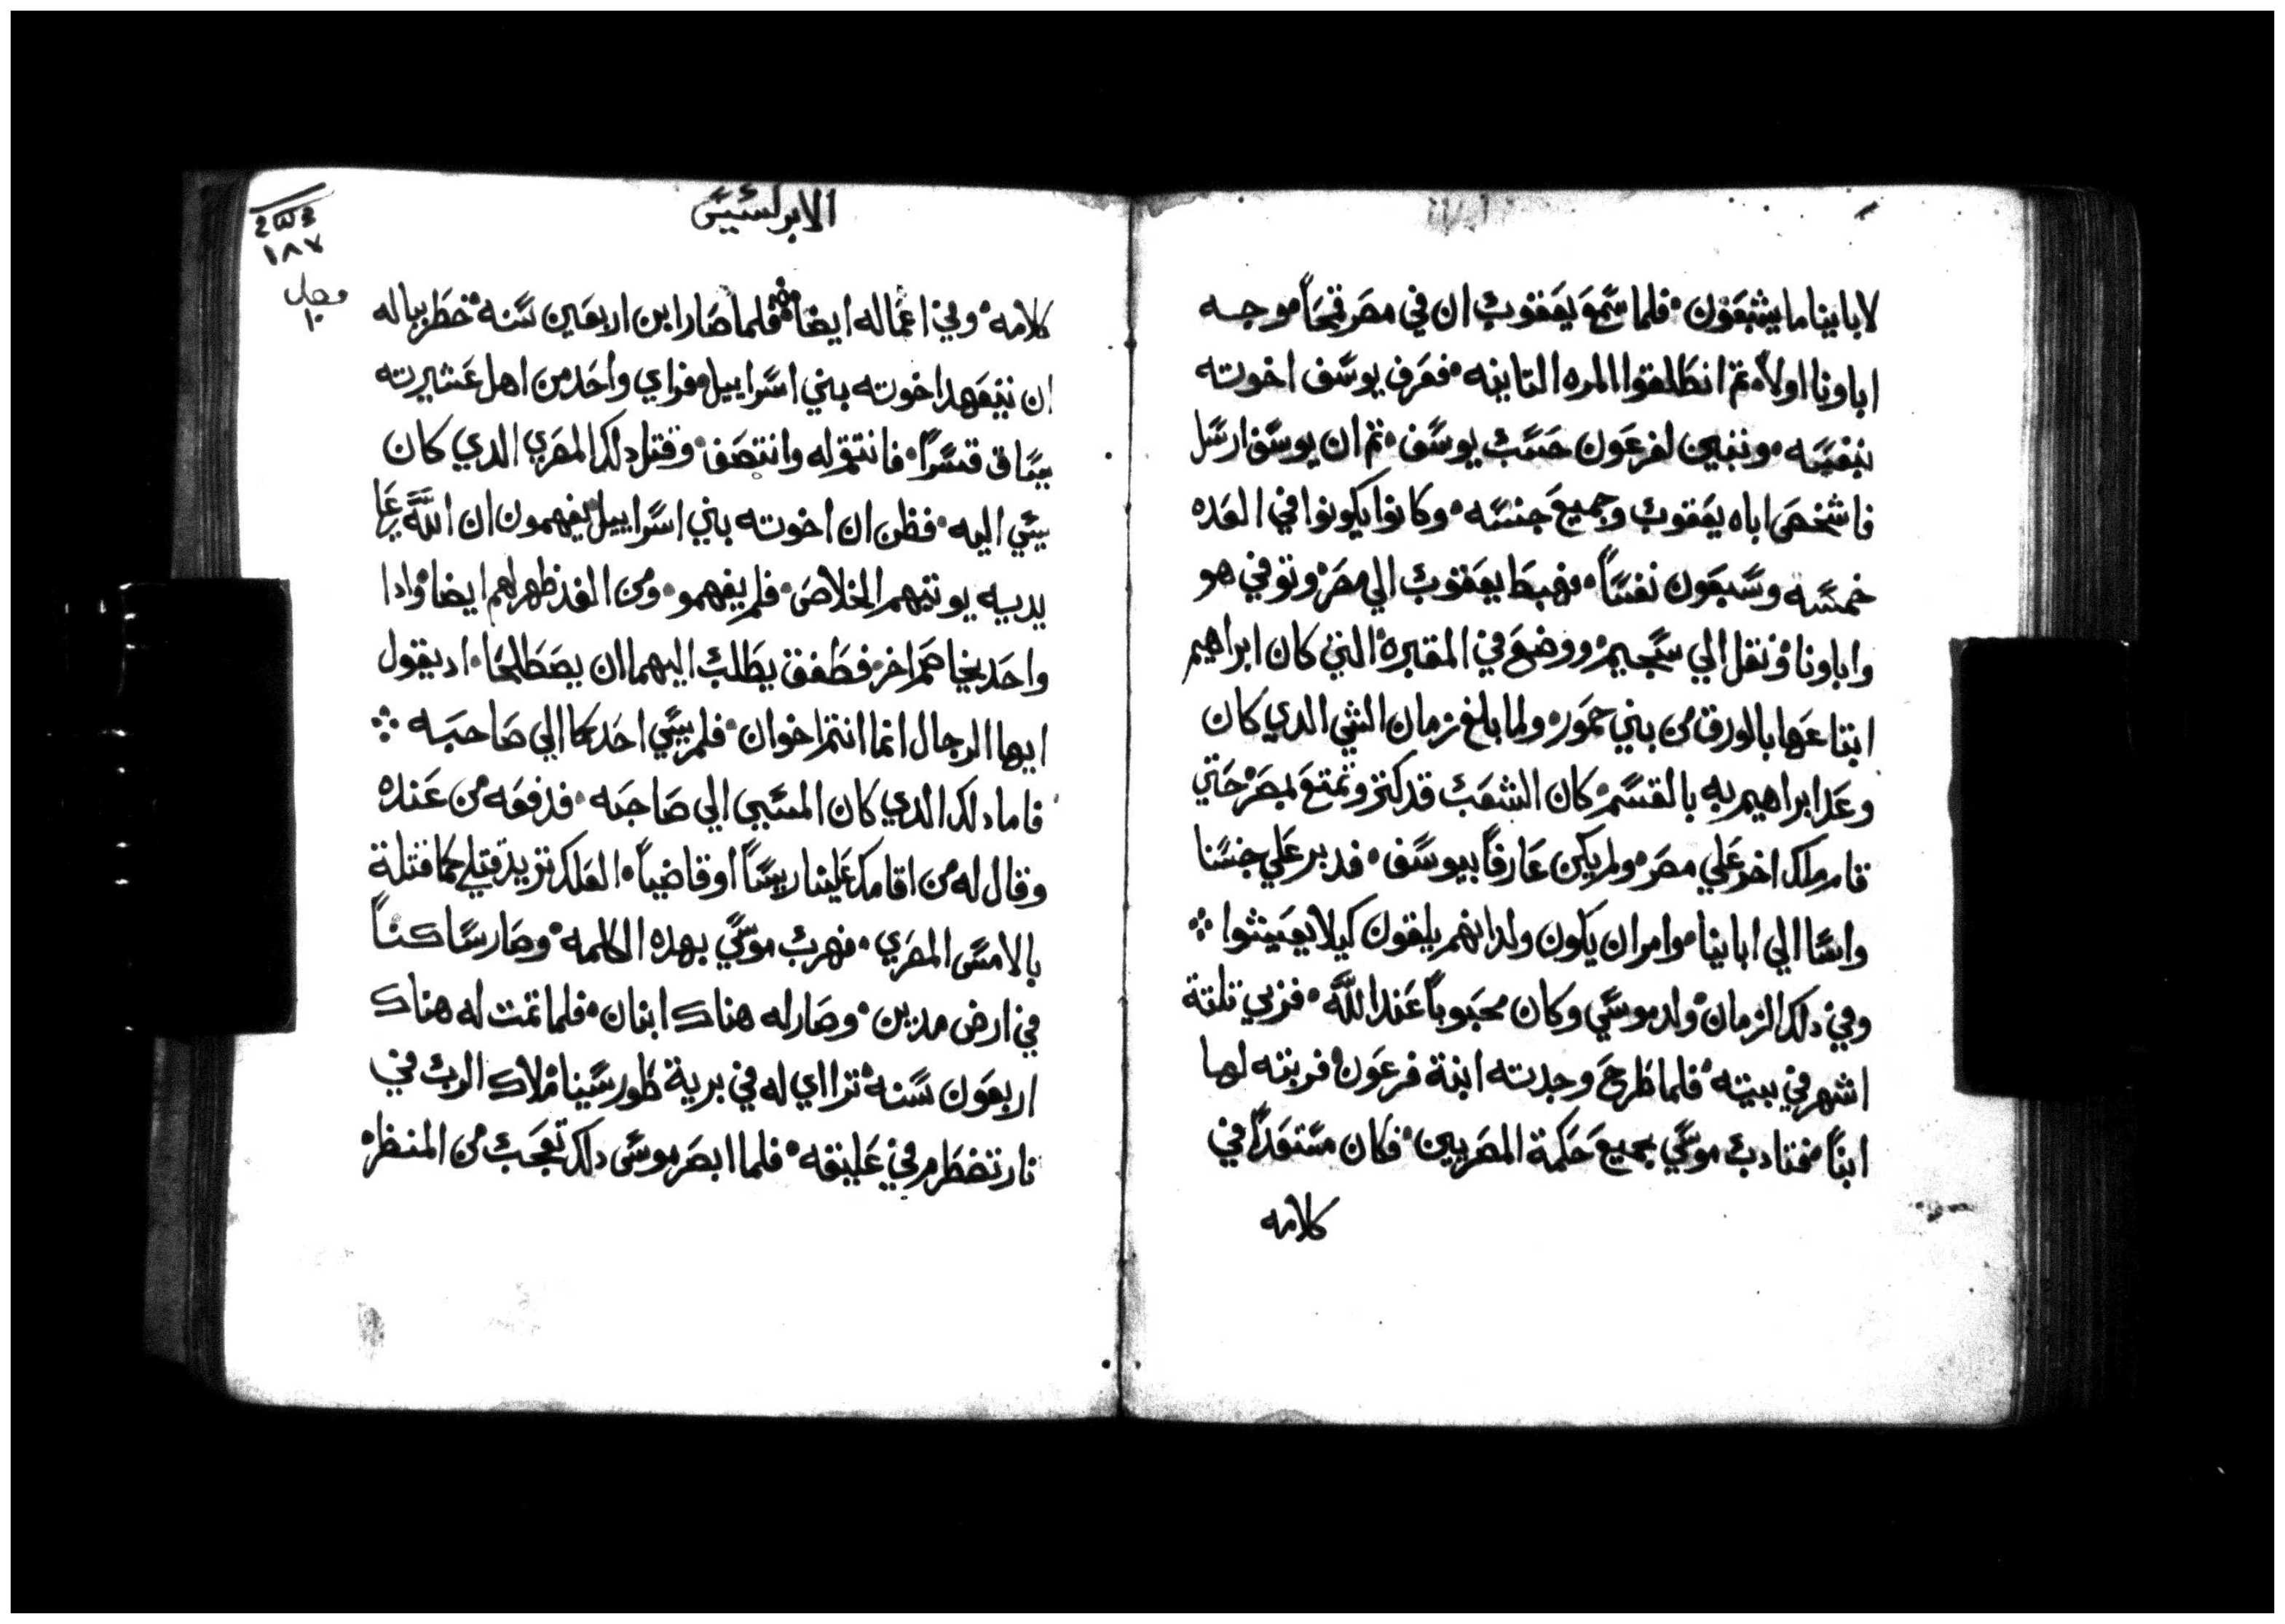 لاباينا ما يشبعون فلما سمع يعقوب ان في مصر قمحاً موجه
اباونا اولاً ثم انطلقوا المره التانيه فعرف يوسف اخوته
بنفسه وتبين لفرعون حسب يوسف ثم ان يوسف ارسل
فاشخص اباه يعقوب وجميع جنسه وكانوا يكونوا في العده
خمسه وسبعون نفساً فهبط يعقوب الي مصر وتوفي هو
واباونا ونقل الي سجيم ووضع في المقبرة التي كان ابراهيم
ابتاعها بالورق من بني حمور ولما بلغ زمان الشي الدي كان
وعد ابراهيم به بالقسم كان الشعب قد كتر وتمتع بمصر حتي
قام ملك اخر علي مصر ولم يكن عارفاً بيوسف فدبر علي جنسنا
واسا الي اباينا وامر ان يكون ولدانهم يلقون كيلا يعيشوا
وفي دلك الزمان ولد موسي وكان محبوباً عند الله فربي تلتة
اشهر في بيته فلما طرح وجدته ابنة فرعون فربته لها
ابناً فتادب موسي بجميع حكمة المصريين فكان مستعداً في
كلامه
الابركسيس
١٨٧
كلامه وفي اعماله ايضا فلما صار ابن اربعين سنه خطر بباله
ان يتعهد اخوته بني اسراييل فراي واحد من اهل عشيرته
يساق قسراً فانتقم له وانتصف وقتل دلك المصري الدي كان
يسي اليه فظن ان اخوته بني اسراييل يفهمون ان الله علي
يديه يوتيهم الخلاص فلم يفهمو ومن الغد ظهر لهم ايضا وادا
واحد يخاصم اخر فطفق يطلب اليهما ان يصطلحا اد يقول
ايها الرجال انما انتم اخوان فلم يسي احدكما الي صاحبه
فاما دلك الدي كان المسيي الي صاحبه فدفعه من عنده
وقال له من اقامك علينا ريسًا او قاضياً العلك تريد قتلي كما قتلة
بالامس المصري فهرب موسي بهده الكلمه وصار ساكناً
في ارض مدين وصار له هناك ابنان فلما تمت له هناك
اربعون سنه تراااي له في برية طور سينا ملاك الرب في
نار تضطرم في عليقه فلما ابصر موسي دلك تعجب من المنظر